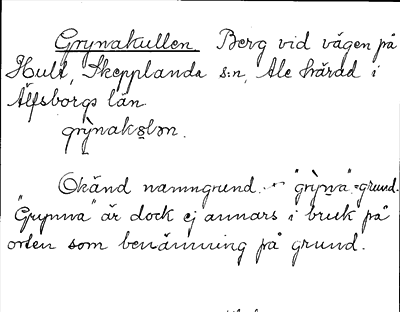 Grynakullen Berg vid vägen på
Hult, Skepplanda s:n, Ale härad i
Älfsborgs län.
grỳnakələn.
Okänd namngrund. - "grỳna" = grund.
"Grynna" är dock ej annars i bruk på
orten som benämning på grund.